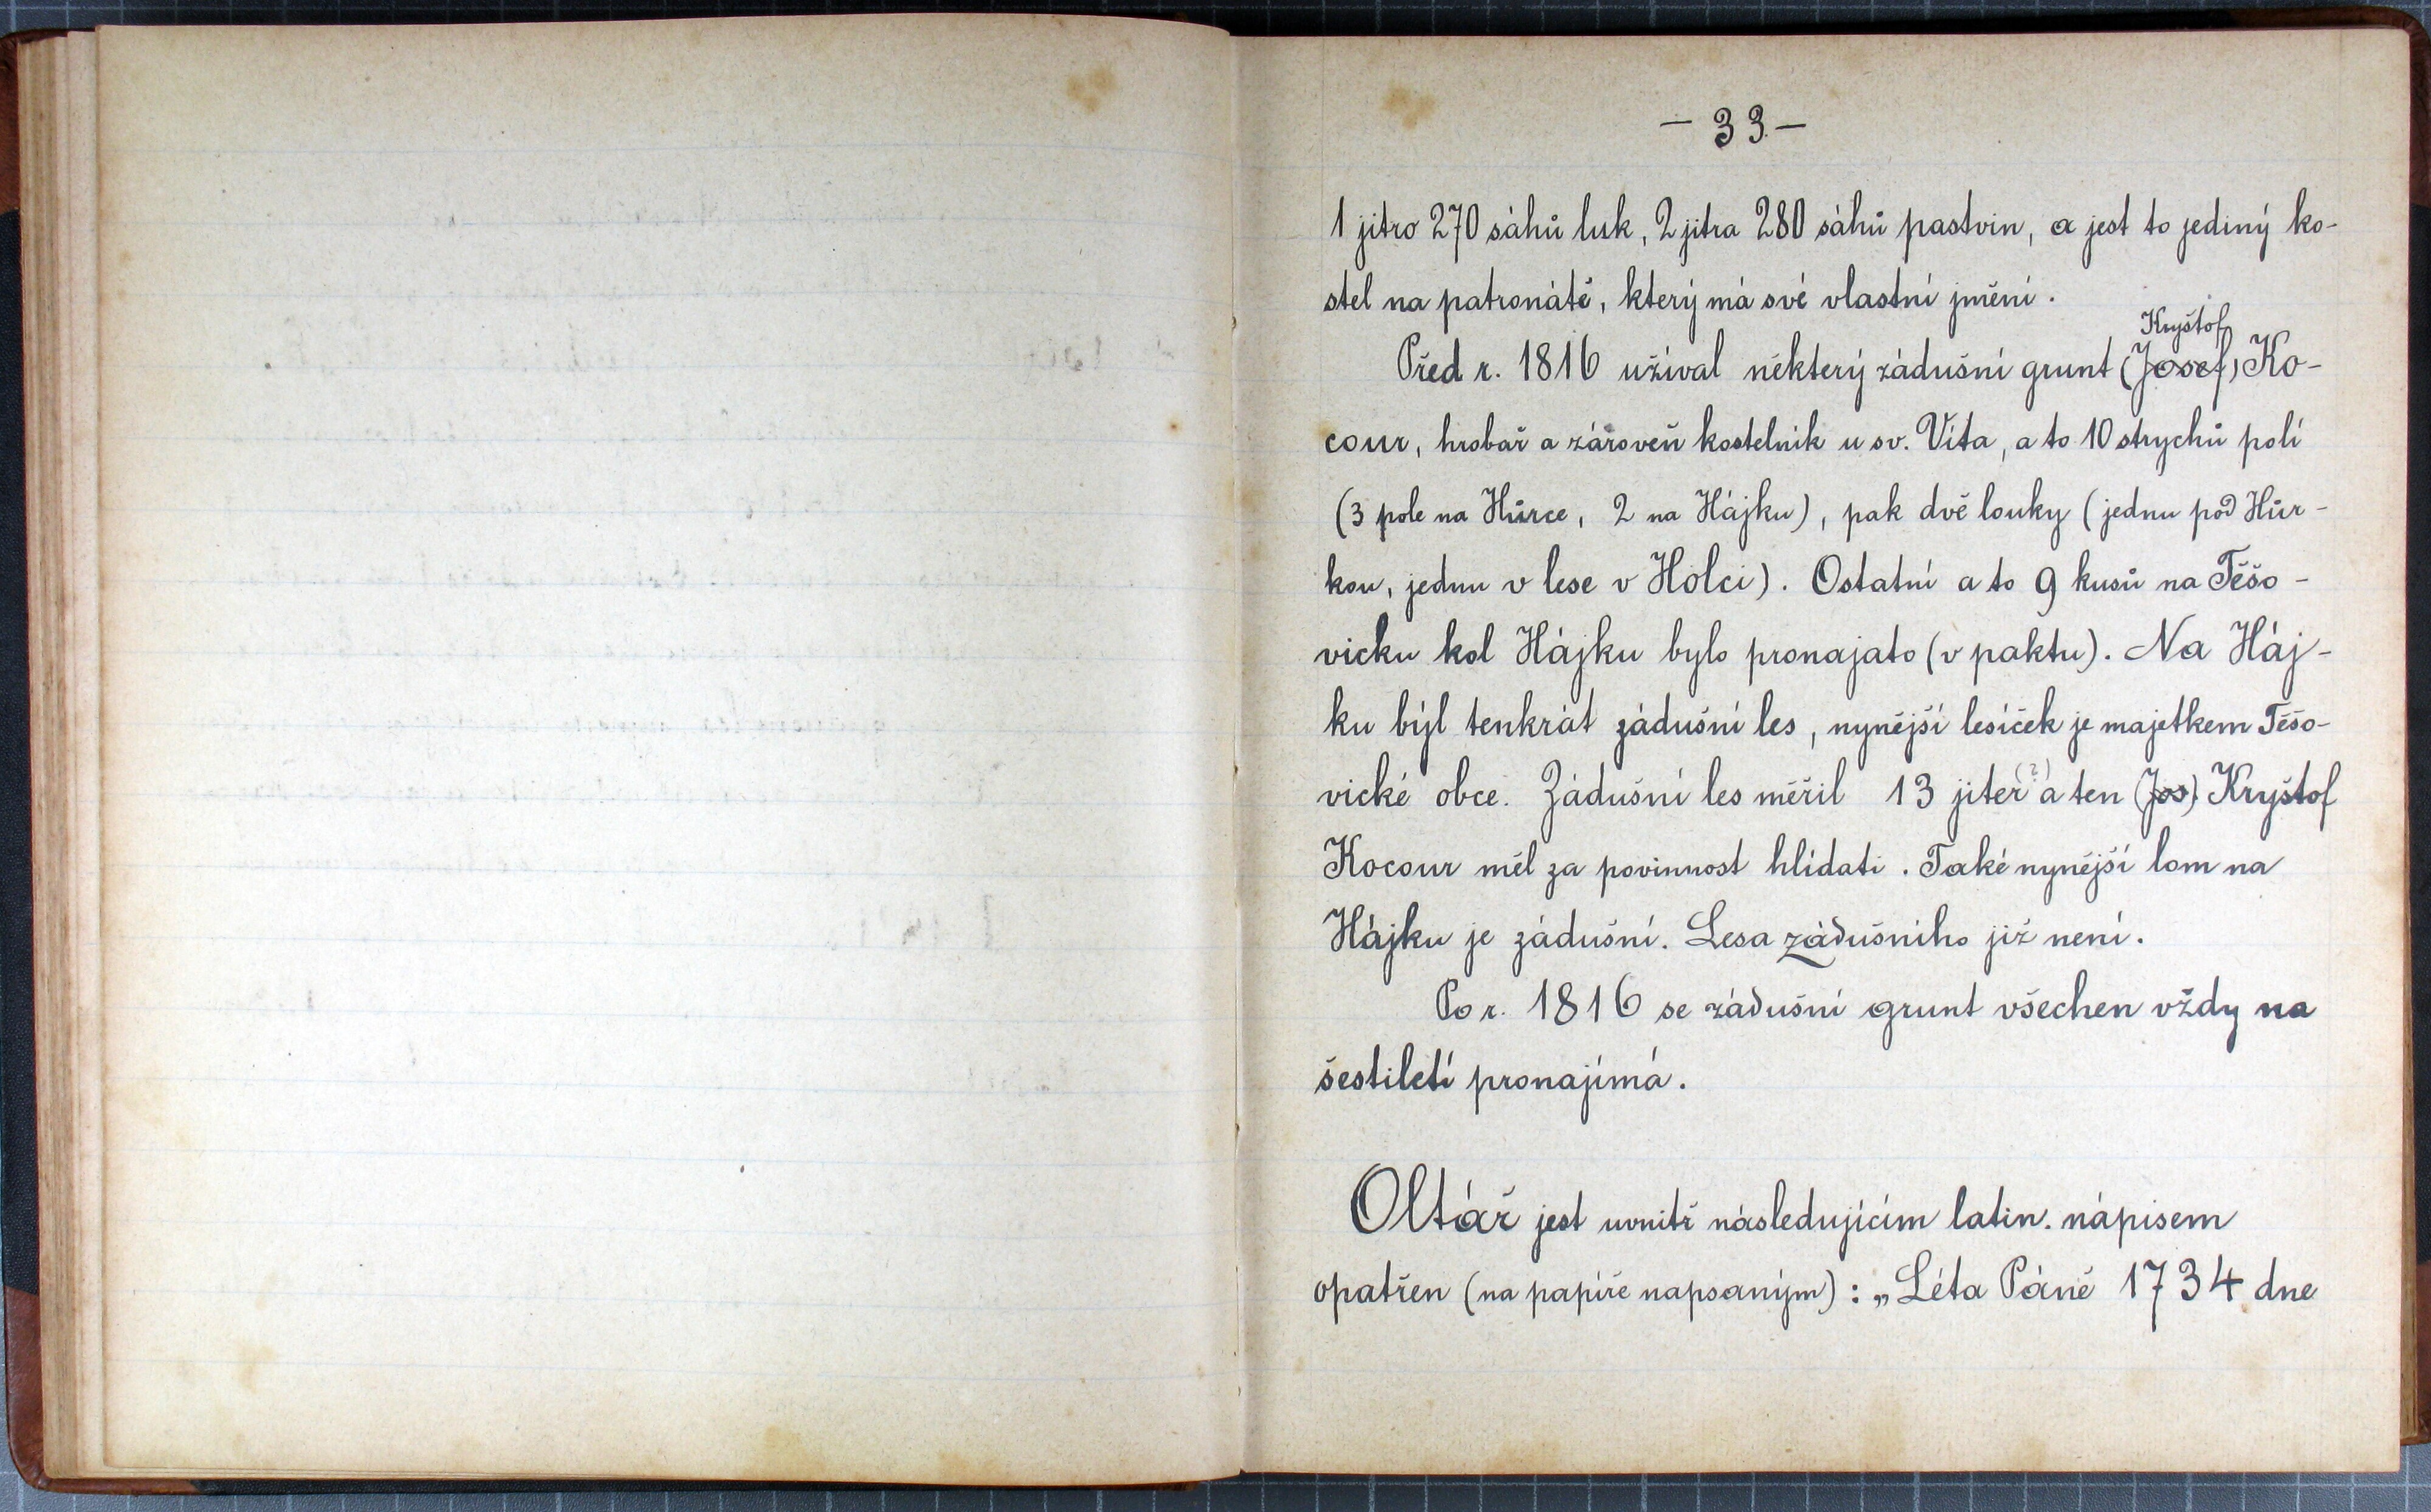 - 33 -
1 jitro 270 sáhů luk, 2 jitra 280 sáhů pastvin, a jest to jediný ko-
stel na patronátě, který má své vlastní jmění.
Kryštof
Před r. 1816 užíval některý zádušní grunt (Josef) Ko-
cour, hrobař a zároveň kostelník u sv. Víta, a to 10 strychů polí
(3 pole na Hůrce, 2 na Hájku), pak dvě louky (jednu pod Hůr-
kou, jednu v lese v Holci). Ostatní a to 9 kusů na Těšo-
vicku kol Hájku bylo pronajato (v paktu). Na Háj-
ku býl tenkrát zádušní les, nynější lesíček je majetkem Těšo-
vické obce. Zádušní les měřil 13 jiter (?) a ten (Jos). Kryštof
Kocour měl za povinnost hlídati. Také nynější lom na
Hájku je zádušní. Lesa zádušního již není.
Po r. 1816 se zádušní grunt všechen vždy na
šestiletí pronajímá.
Oltář jest uvnitř následujícím latin. nápisem
opatřen (na papíře napsaným): „Léta Páně 1734 dne